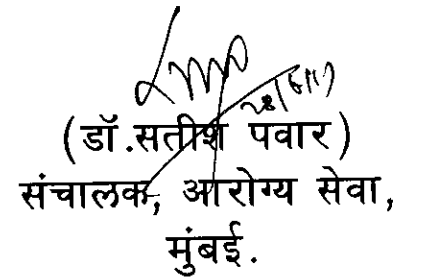 (डॉ.सतीश पवार)
संचालक, आरोग्य सेवा,
मुंबई.